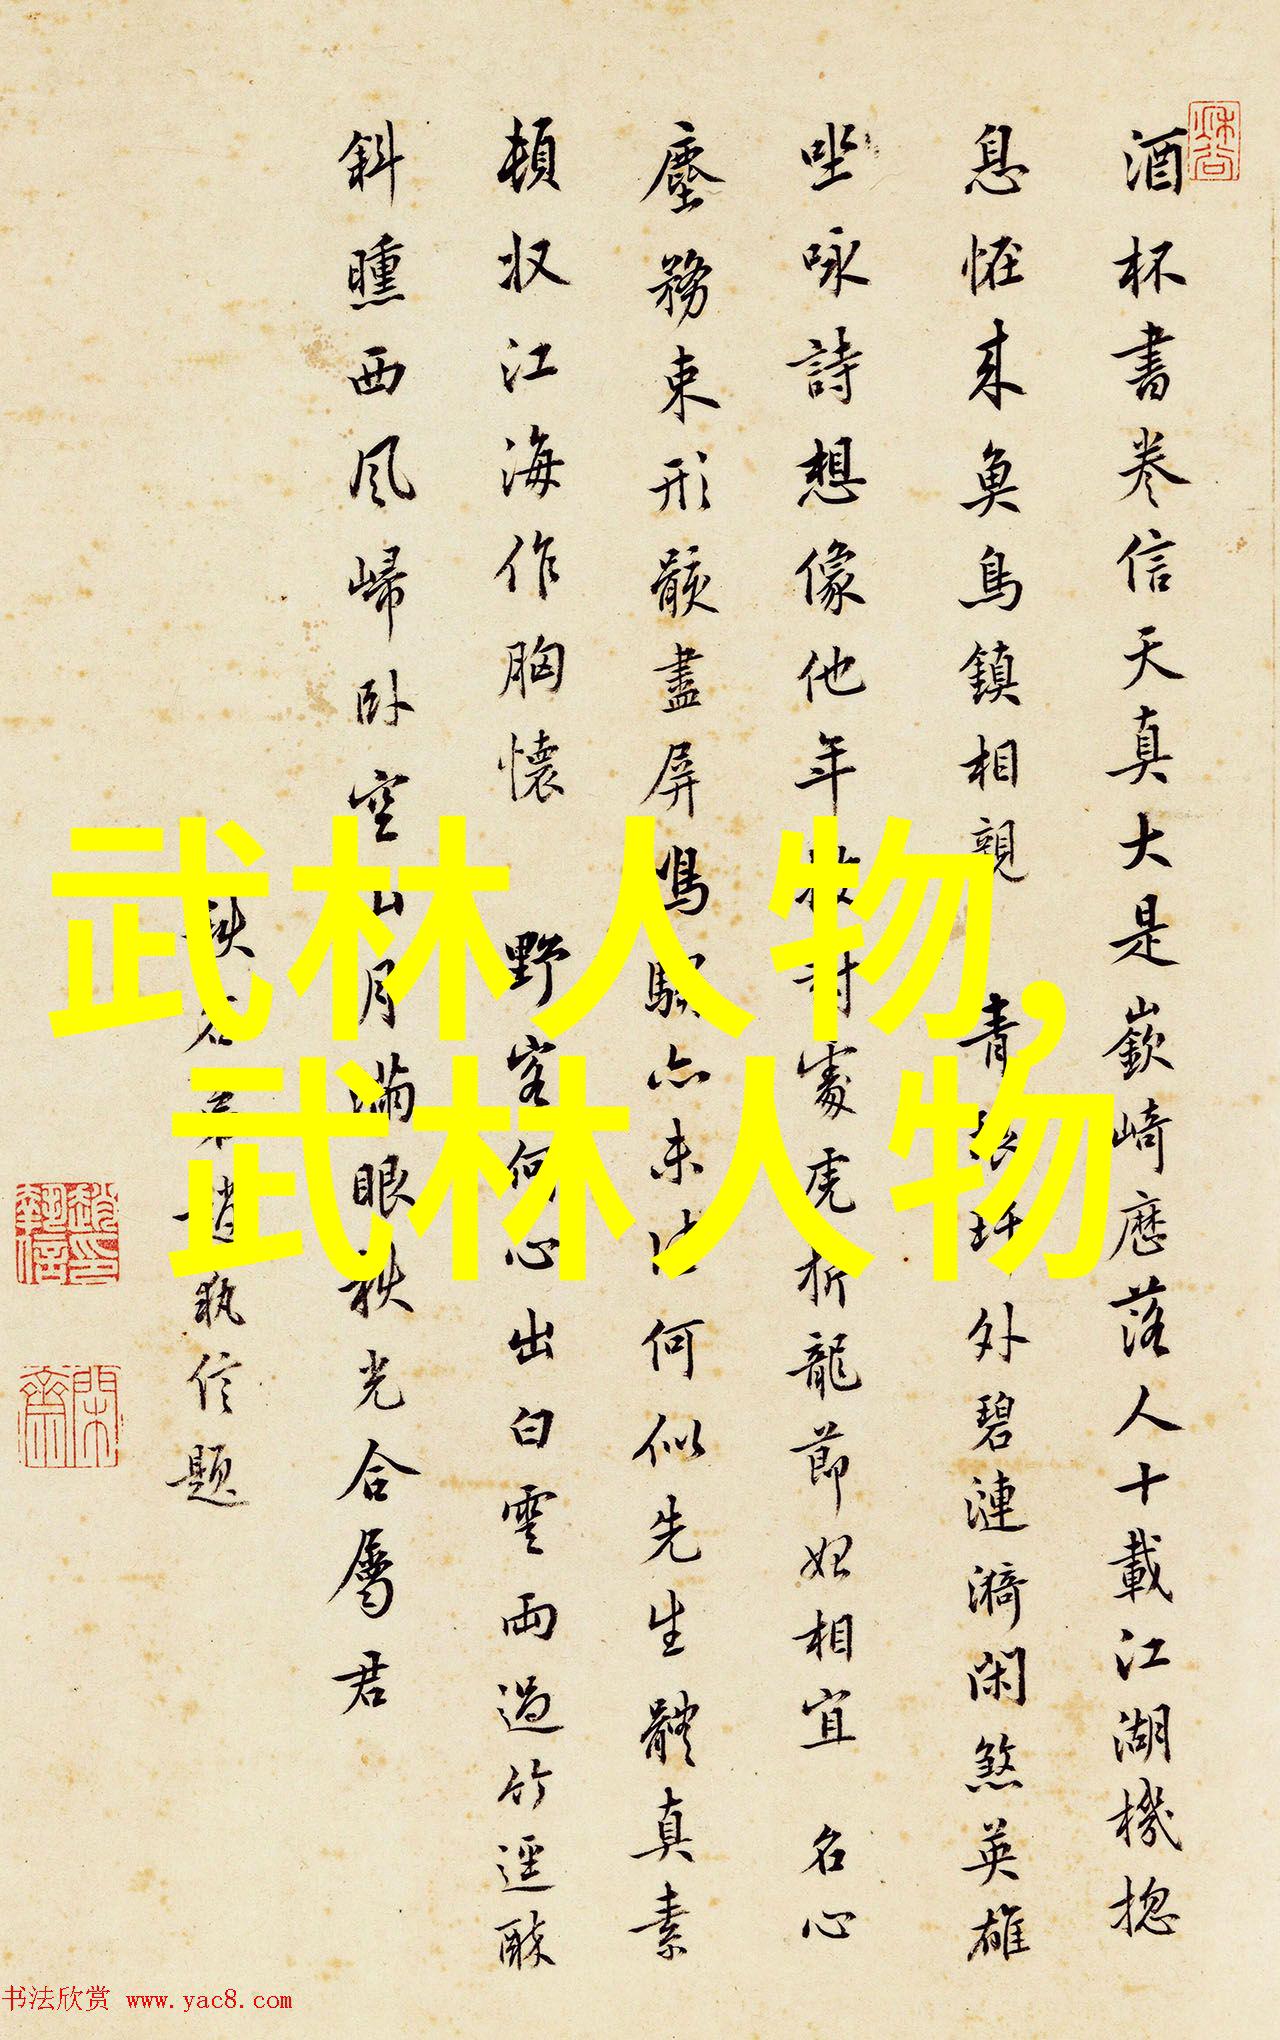 酒杯書卷信天真大是嶔崎歷落人十載江湖機揔
息恠來魚鳥鎮相親 青 外碧漣漪闲煞英雄
坐咏詩想像他年 虎折龍節始相宜 名心
塵務束形骸盡屏 亦未 何似先生體真素
頓収江海作胸懷 野客何心出白雲雨過竹逕酥
斜曛西風歸卧空山月滿眼秋光合屬君
秋 趙執信題
武林人物，
武林人物
书法欣赏 www.yac8.com